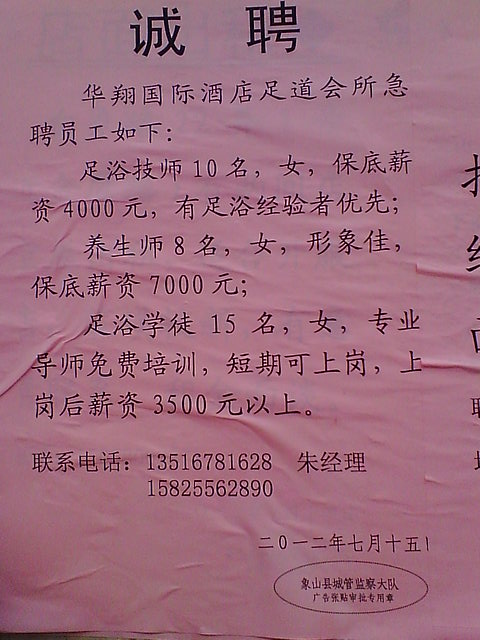 诚 聘
华翔国际酒店足道会所急
聘员工如下：
足浴技师 10 名，女，保底薪
资 4000 元，有足浴经验者优先；
养生师 8 名，女，形象佳，
保底薪资 7000 元；
足浴学徒 15 名，女，专业
导师免费培训，短期可上岗，上
岗后薪资 3500 元以上。
联系电话：13516781628 朱经理
15825562890
二〇一二年七月十五
象山县城管监察大队
广告张贴审批专用章